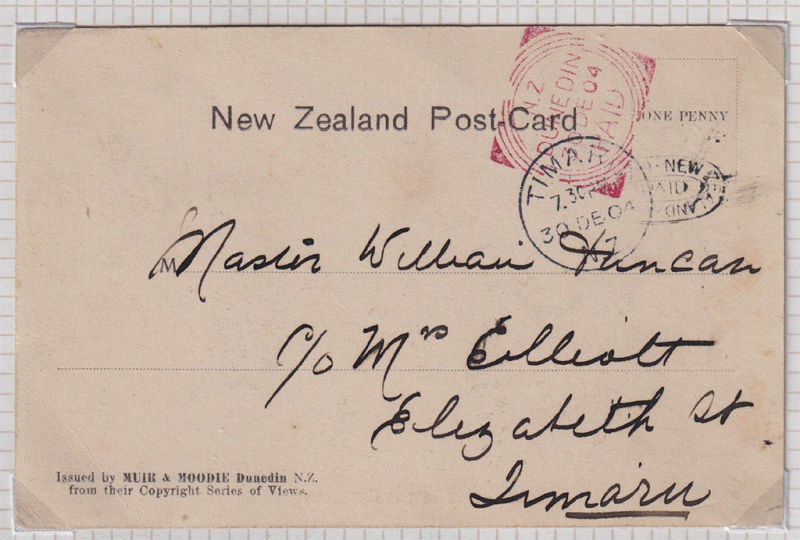 New Zealand Post-Card
ONE PENNY
N.Z.
DUNEDIN
DE 04
PAID
TIMARU
7.30 P
30 DE 04
7
NEW
PAID
Master William Duncan
c/o Mrs Elliott
Elizabeth St
Timaru
Issued by MUIR & MOODIE Dunedin N.Z.
from their Copyright Series of Views.